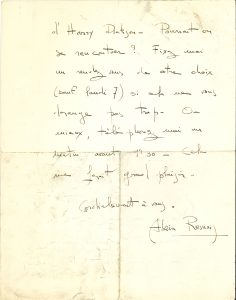 d'Harry Dickson - Pourrait-on
se rencontrer ? Fixez moi
un rendez vous de votre choix
(sauf lundi 7) si cela ne vous
dérange pas trop - Ou
mieux, téléphonez moi un
matin avant 9h30 - Cela
me ferait grand plaisir.
Cordialement à vous,
Alain Resnais